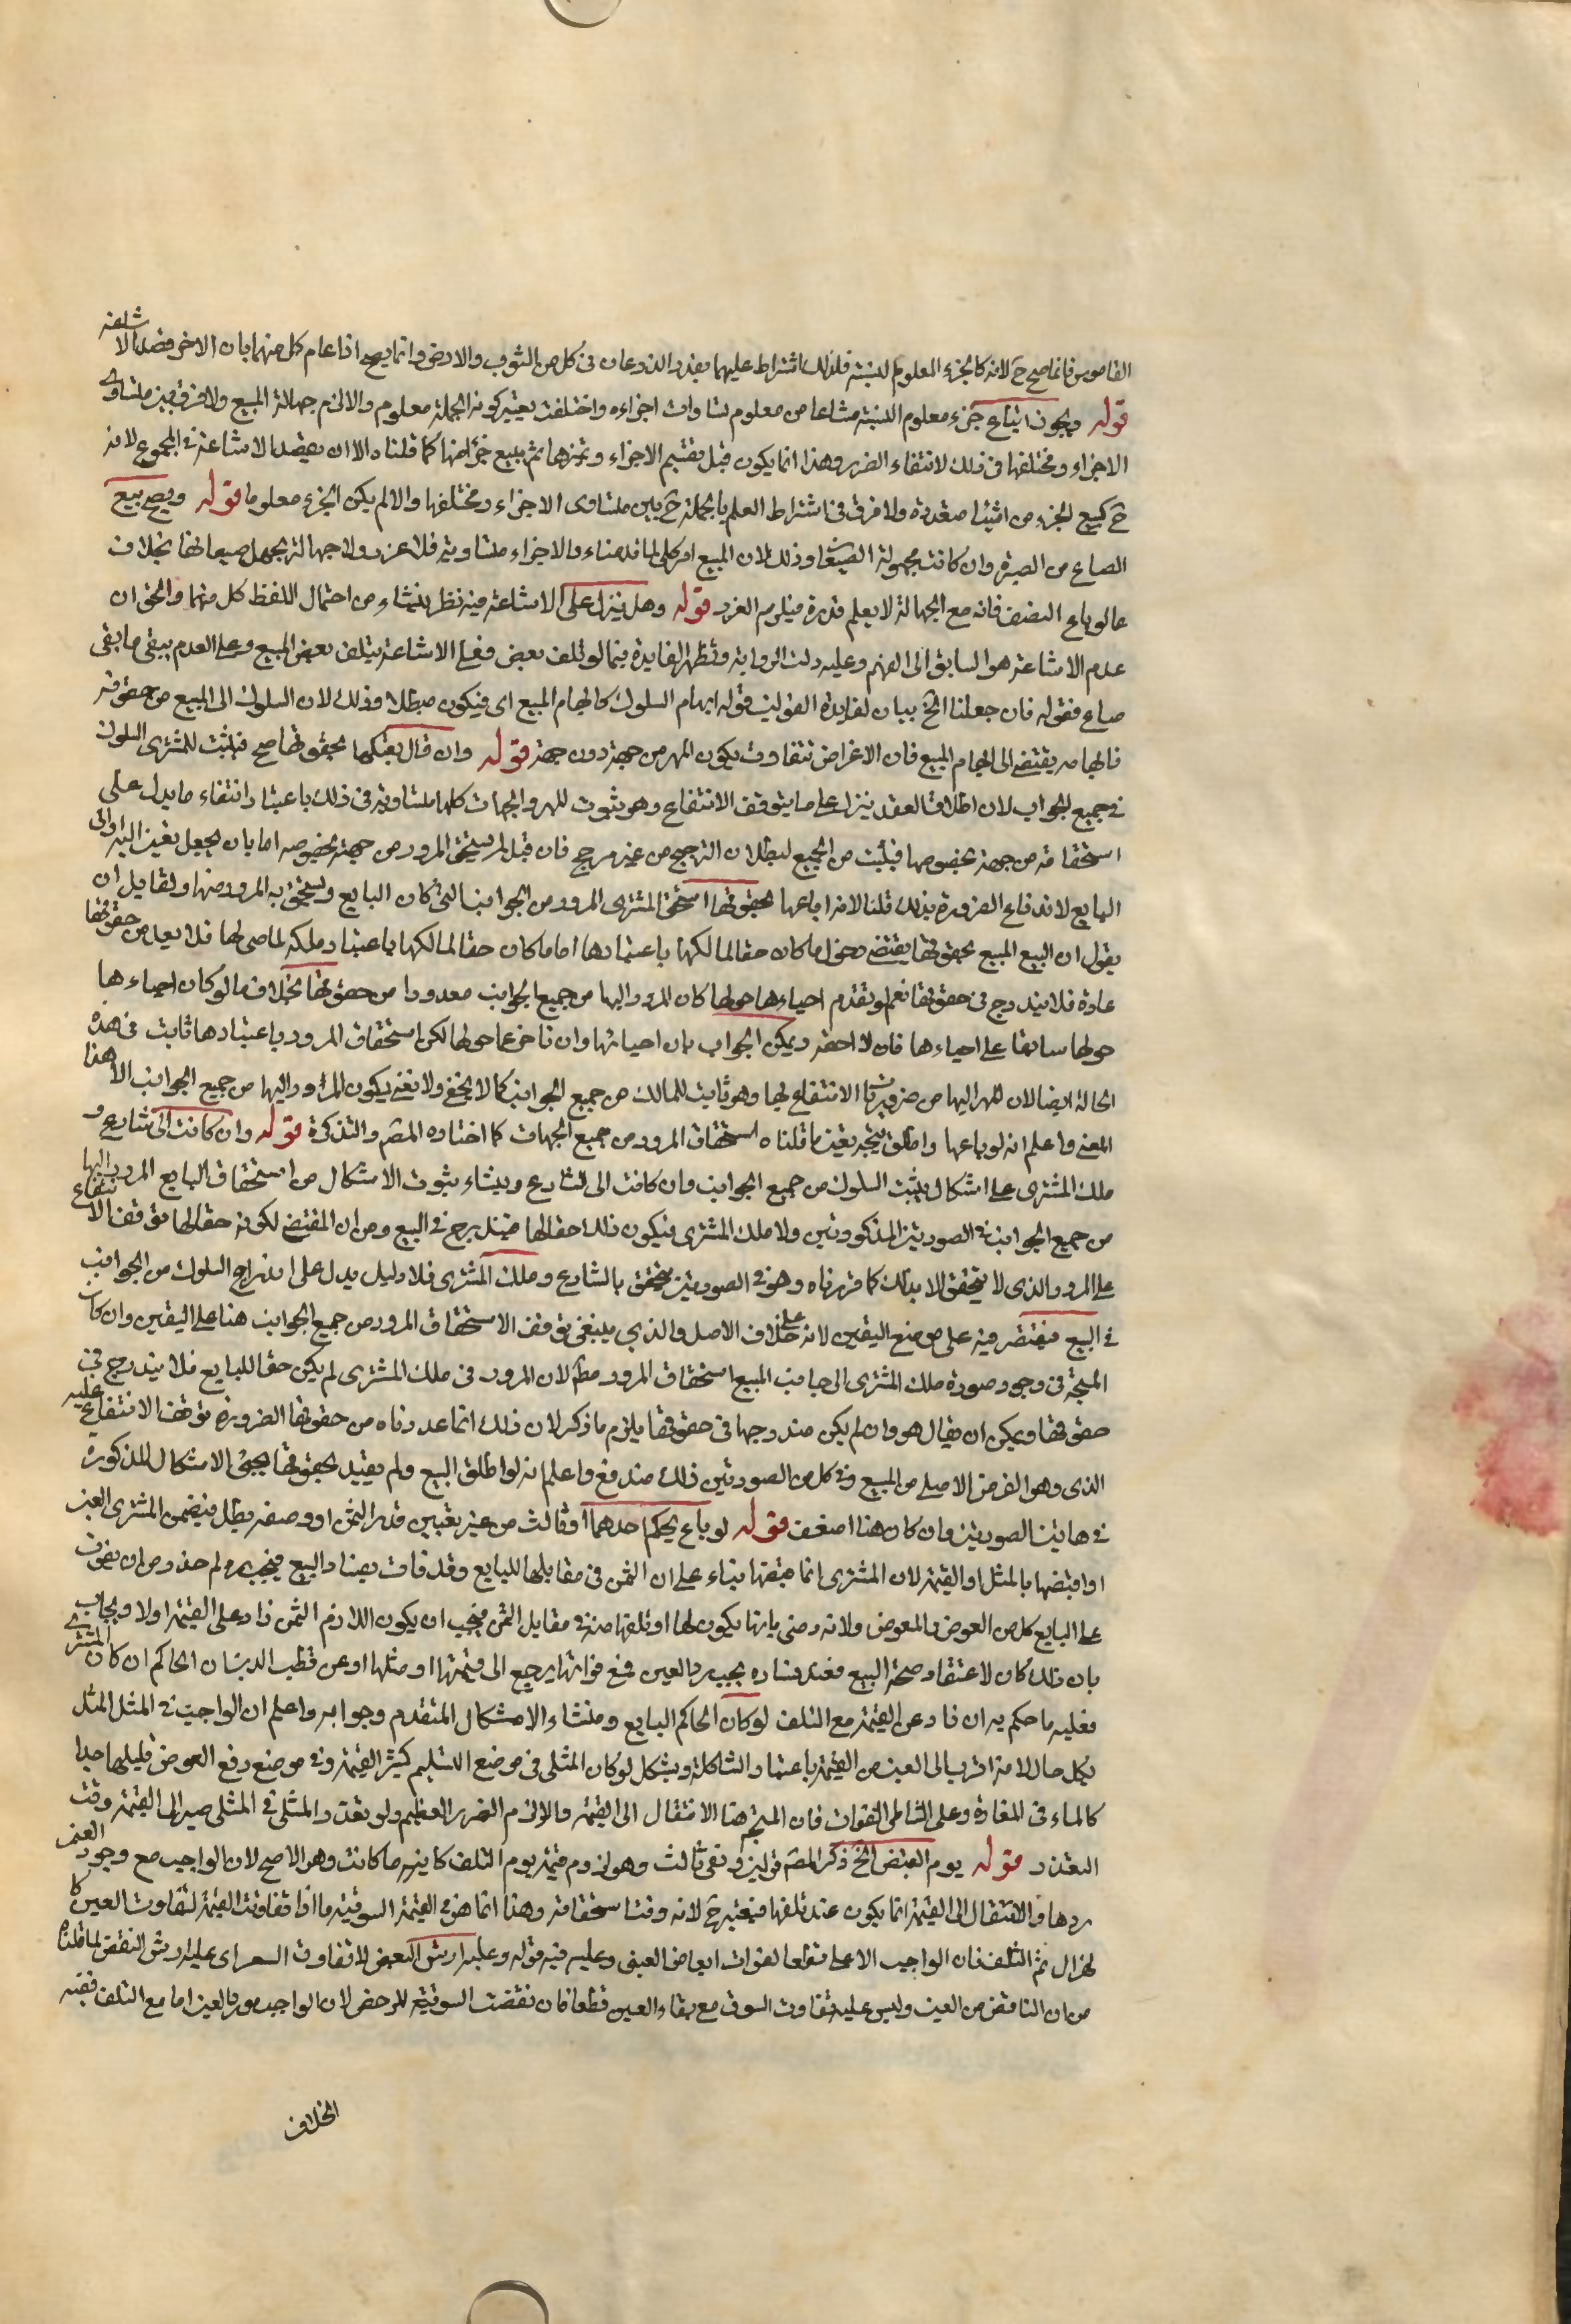 القاموس فانما صح ح لانه كالجزء المعلوم النسبة فلذلك اشتراط عليهما بقدر الذرعان في كل من الثوب والارض وانما يصح اذا علم كل منهما بان الاخر قصد الاشاعة
قوله ويجوز ابتياع جزء معلوم النسبة مشاعا من معلوم تساوت اجزاءه واختلفت يعتبر كونه الجملة معلوم والا لزم جهالة المبيع ولا فرق بين متساوي
الاجزاء ومختلفها في ذلك لانتفاء الضرر وهذا انما يكون قبل تقسيم الاجزاء وتميزها ثم يبيع جزء منها كما قلناه الا ان يقصد الاشاعة في المجموع لانه
ح كبيع الجزء من اشياء متعددة ولا فرق في اشتراط العلم بالجملة ح بين متساوي الاجزاء ومختلفها والا لم يكن الجزء معلوما قوله ويصح بيع
الصاع من الصبرة وان كانت مجهولة الصيعان وذلك لان المبيع امر كلي لما قدمناه والاجزاء متساوية فلا غرر ولا جهالة بجهل صيعانها بخلاف
ما لو باع النصف فانه مع الجهالة لا يعلم قدره فيلزم الغرر قوله وهل ينزل على الاشاعة فيه نظر ينشاء من احتمال اللفظ كل منهما والحق ان
عدم الاشاعة هو السابق الى الفهم وعليه دلت الرواية وتظهر الفايدة فيما لو تلف بعض فعلى الاشاعة يتلف بعض المبيع وعلى العدم يبقى ما بقى
صاع فقوله فان جعلنا الخ بيان لفايدة القولين قوله ابهام السلوك كابهام المبيع اي فيكون مبطلا وذلك لان السلوك الى المبيع من حقوقه
فابهامه يقتضي الى ابهام المبيع فان الاغراض تتفاوت بكون الممر من جهة دون جهة قوله وان قال بعتكها بحقوقها صح فيثبت للمشترى السلوك
في جميع الجوانب لان اطلاق العقد ينزل على ما يتوقف الانتفاع وهو ثبوت الممر والجهات كلها متساوية في ذلك باعتبار انتفاء ما يدل على
استحقاقه من جهة بخصوصها فيثبت من الجميع لبطلان الترجيح من غير مرجح فان قيل لم يستحق المرور من جهة مخصوصه اما بان يجعل تعيين اليه او الى
البايع لاندفاع الضرورة بذلك قلنا لانه لما باعها بحقوقها استحق المشترى المرور من الجوانب التي كان البايع ويستحق به المرور منها ولقايل ان
يقول ان البيع المبيع بحقوقها يقتضي دخول ما كان حقا لمالكها باعتبارها اما ما كان حقا لمالكها باعتبار ملكه لما حولها فلا يعد من حقوقها
عادة فلا يندرج في حقوقها نعم لو تقدم احياءها حولها كان المرور اليها من جميع الجوانب معدودا من حقوقها بخلاف ما لو كان احياءها
حولها سابقا على احياءها فان لا احقر ويمكن الجواب بان احياءها وان تاخر عما حولها لكن استحقاق المرور باعتبارها ثابت في هذه
الحالة ايضا لان الممر اليها من ضروريات الانتفاع بها وهو ثابت للمالك من جميع الجوانب كما لا يخفى ولا نعني بكون المرور اليها من جميع الجوانب الا هذا
المعنى واعلم انه لو باعها واطلق يتجه بعين ما قلناه استحقاق المرور من جميع الجهات كما اختاره المصر والتذكرة قوله وان كانت الى شارع و
ملك المشترى على اشكال يثبت السلوك من جميع الجوانب وان كانت الى الشارع وينشاء ثبوت الاشكال من استحقاق البايع المرور اليها
من جميع الجوانب في الصورتين المذكورتين ولا ملك المشترى فيكون ذلك حقا لها فيندرج في البيع ومن ان المقتضى لكونه حقا لها توقف الانتفاع
على المرور الذي لا يتحقق الا بذلك كما قررناه وهو في الصورتين يتحقق بالشارع وملك المشترى فلا دليل يدل على اندراج السلوك من الجوانب
في البيع فيقتصر فيه على موضع اليقين لانه على خلاف الاصل والذي ينبغي توقف الاستحقاق المرور من جميع الجوانب هنا على اليقين وان كان
المتجه في وجود صورة ملك المشترى الى جانب المبيع استحقاق المرور مط لان المرور في ملك المشترى لم يكن حقا للبايع فلا يندرج في
حقوقها ويمكن ان يقال هو وان لم يكن مندرجا في حقوقها يلزم ما ذكر لان ذلك انما عددناه من حقوقها الضرورة توقف الانتفاع عليه
الذي وهو الغرض الاصلي من المبيع وفي كل من الصورتين ذلك مندفع واعلم انه لو اطلق البيع ولم يقيد بحقوقها يجئ الاشكال المذكور
في هاتين الصورتين وان كان هنا اضعف قوله لو باع بحكم احدهما او ثالث من غير تعيين قدر الثمن او وصفه بطل فيضمن المشترى العين
او اقبضها بالمثل او القيمة لان المشترى انما قبضها بناء على ان الثمن في مقابلها للبايع وقد فات بفساد البيع فيجب رد لم حذر من ان يفوت
على البايع كل من العوض والمعوض ولانه رضى بانها يكون لها او تلفها منه في مقابل الثمن فيجب ان يكون اللازم الثمن زاد على القيمة اولا ويجاب
بان ذلك كان لاعتقاد صحة البيع فعند فساده يجب رد العين فمع فواتها يرجع الى قيمتها او مثلها وعن قطب الدين ان الحاكم ان كان المشتري
فعليه ما حكم به ان زاد عن القيمة مع التلف لو كان الحاكم البايع ومنشاء الاشكال المتقدم وجوابه واعلم ان الواجب في المثل المثل
بكل حال لانه اقرب الى العين من القيمة باعتبار الشاكلة ويشكل لو كان المثلى في موضع التسليم كثير القيمة وفي موضع دفع العوض قليلها جدا
كالماء في المفازة وعلى الشاطى الفوات فان المتجه هنا الانتقال الى القيمة والا لزم الضرر العظيم ولو تعذر المثلى في المثلى صير الى القيمة وقت
التعذر قوله يوم القبض الخ ذكر المصر قولين وبقى ثالث وهو لزوم قيمة يوم التلف كاينه ما كانت وهو الاصح لان الواجب مع وجود العين
ردها والانتقال الى القيمة انما يكون عند تلفها فيعتبر ح لانه وقت استحقاقه وهذا انما هو في القيمة السوقية ما اذا تفاوتت القيمة لتفاوت العين كا
لهزال ثم التلف فان الواجب الاعلى قطعا لفوات ابعاض العين وعليه فيه قوله وعليه ارش البعض لا تفاوت السعر اى عليه ارش النقص لما قلناه
من ان الناقص من العين وليس عليه تفاوت السوق مع بقاء العين قطعا فان نقصت السوقية للرخص لان الواجب رد العين اما مع التلف ففيه
الخلاف